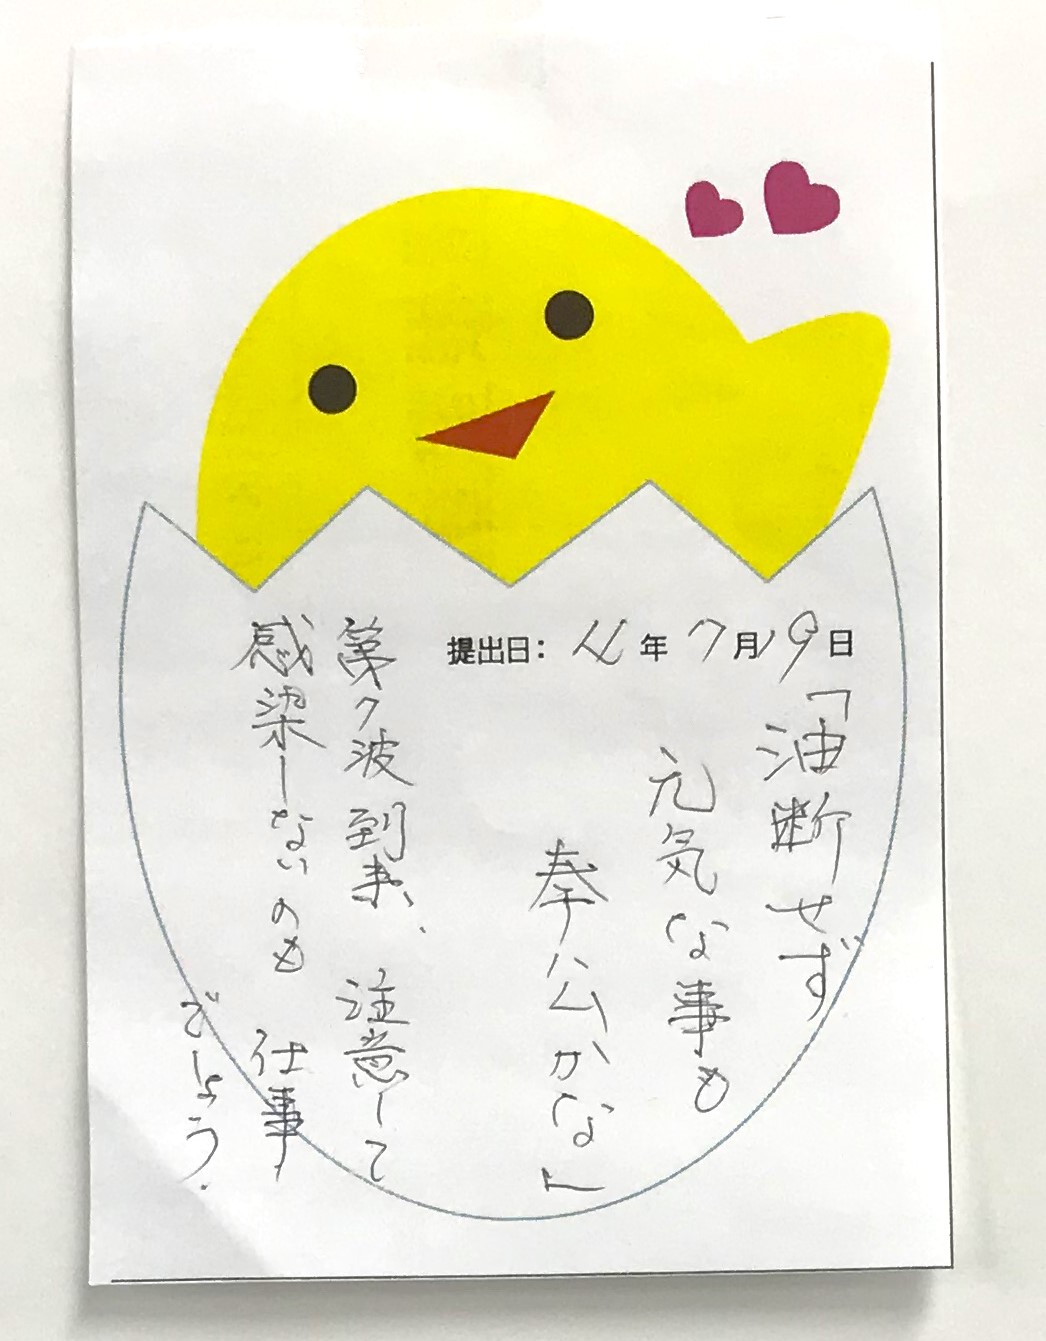 提出日: 4年7月19日
「油断せず
元気な事も
奉公かな」
第7波到来、注意して
感染しないのも仕事
でしょう.